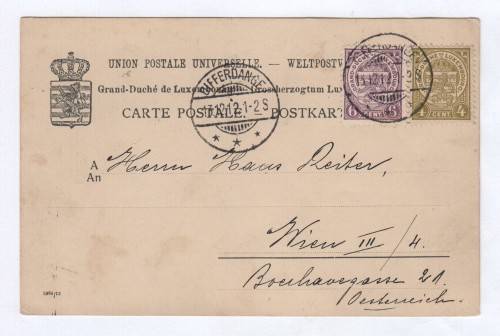 UNION POSTALE UNIVERSELLE. — WELTPOSTV
Grand-Duché de Luxembourg. Grossherzogtum Lu
CARTE POSTALE. POSTKAR
DIFFERDANGE
13.12.12.1-2S
6 CENTIMES 6
4 CENT. 4
A
An
Herrn Hans Reiter,
Wien III/4.
Boerhavegasse 21.
Oesterreich.